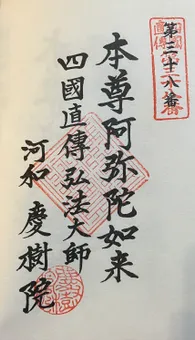 第三十八番
本尊阿弥陀如来
四國直傳弘法大師
河和 慶樹院